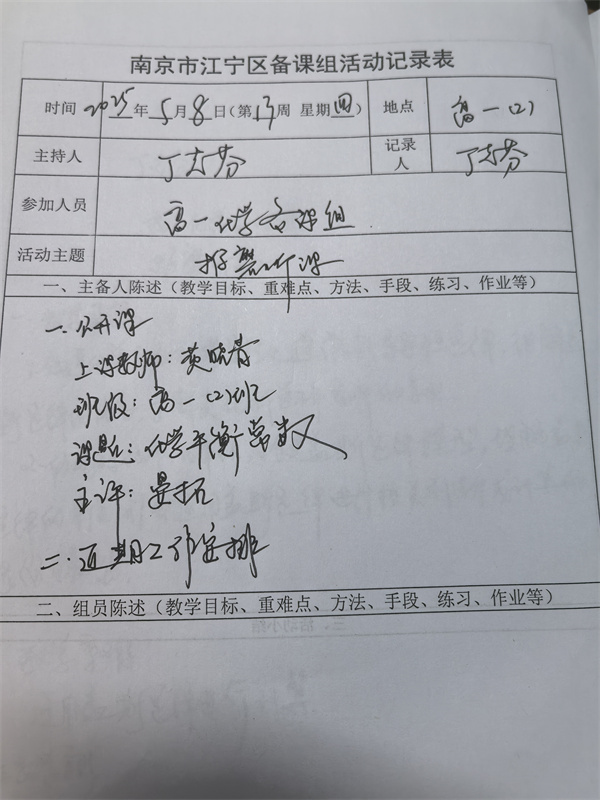 南京市江宁区备课组活动记录表
时间 2025年5月8日(第13周 星期四) 地点 高一(2)
主持人 丁志芬 记录人 丁志芬
参加人员 高一化学备课组
活动主题
一、主备人陈述(教学目标、重难点、方法、手段、练习、作业等)
一.公开课
上课教师:黄晓青
班级:高一(2)班
课题:化学平衡常数
主评:晏拓
二.近期工作安排
二、组员陈述(教学目标、重难点、方法、手段、练习、作业等)